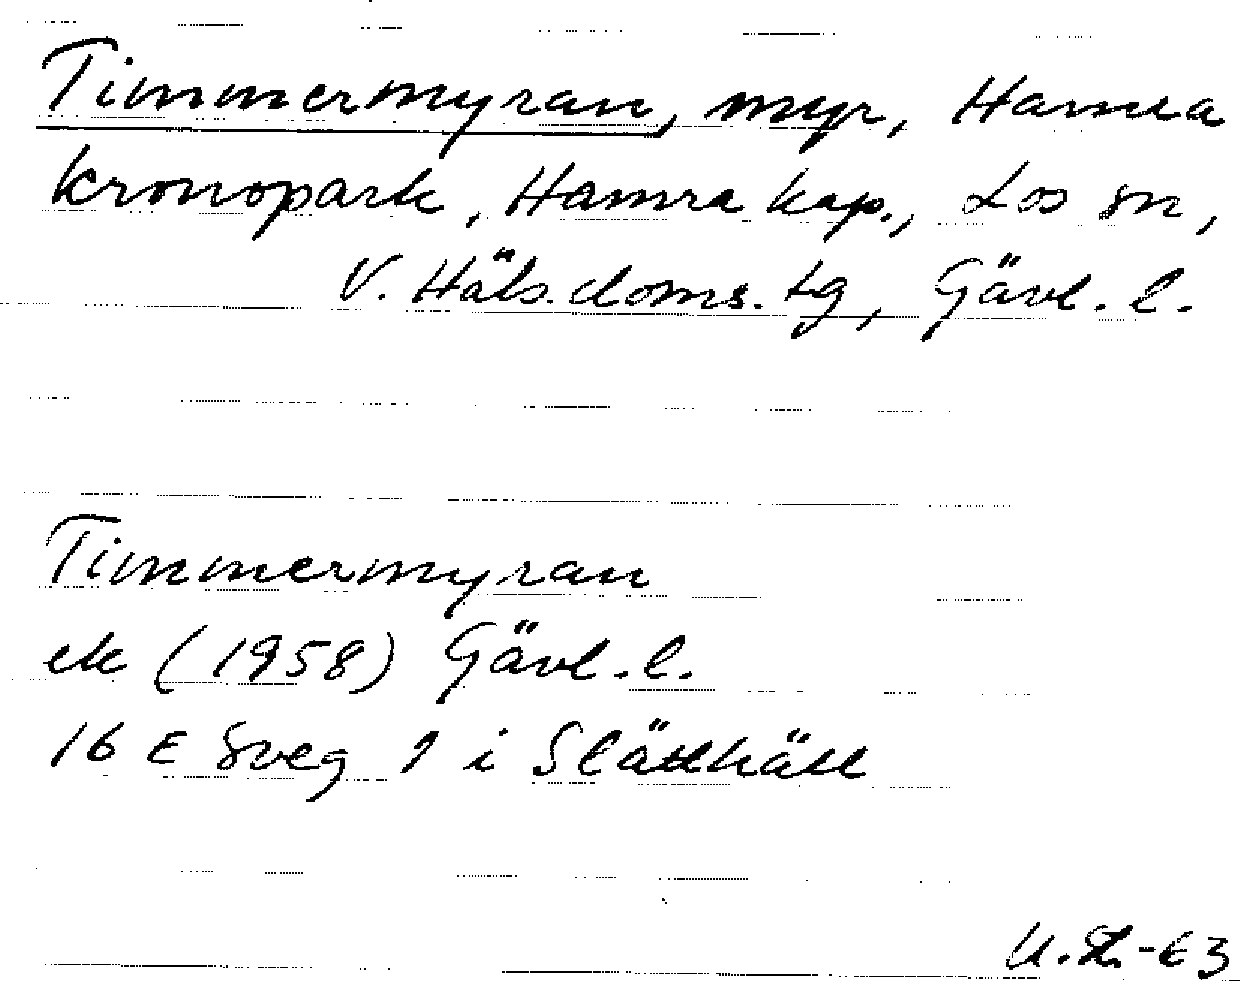 Timmermyran, myr, Hamra
kronopark, Hamra kap., Los sn,
V. Häls. doms. tg, Gävl. l.
Timmermyran
ek (1958) Gävl. l.
16 E Sveg 1 i Slätthätt
-63